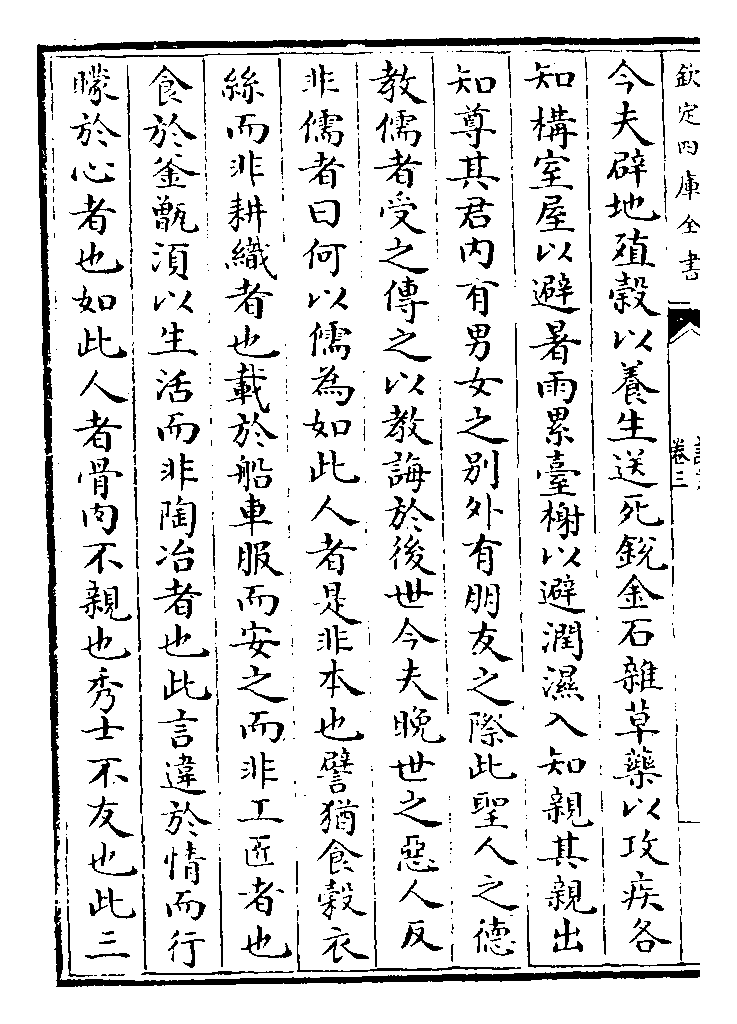 欽定四庫全書
卷三
今夫辟地殖榖以養生送死鋭金石雜草藥以攻疾各
知構室屋以避暑雨累臺榭以避潤濕入知親其親出
知尊其君内有男女之别外有朋友之際此聖人之德
教儒者受之傳之以教誨於後世今夫晩世之惡人反
非儒者曰何以儒為如此人者是非本也譬猶食榖衣
絲而非耕織者也載於船車服而安之而非工匠者也
食於釜甑湏以生活而非陶冶者也此言違於情而行
矇於心者也如此人者骨肉不親也秀士不友也此三